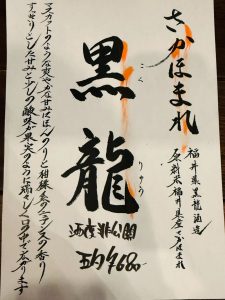 さかほまれ
福井県黒龍酒造
原料米福井県産さかほまれ
黒龍
こく
りゅう
酒度非公開
五勺¥680
マスカットのような爽やかな甘みはほんのりと柑橘系のニュアンスの香り
すっきりとした甘みと少しの酸味が果実のように瑞々しく口の中で広がります